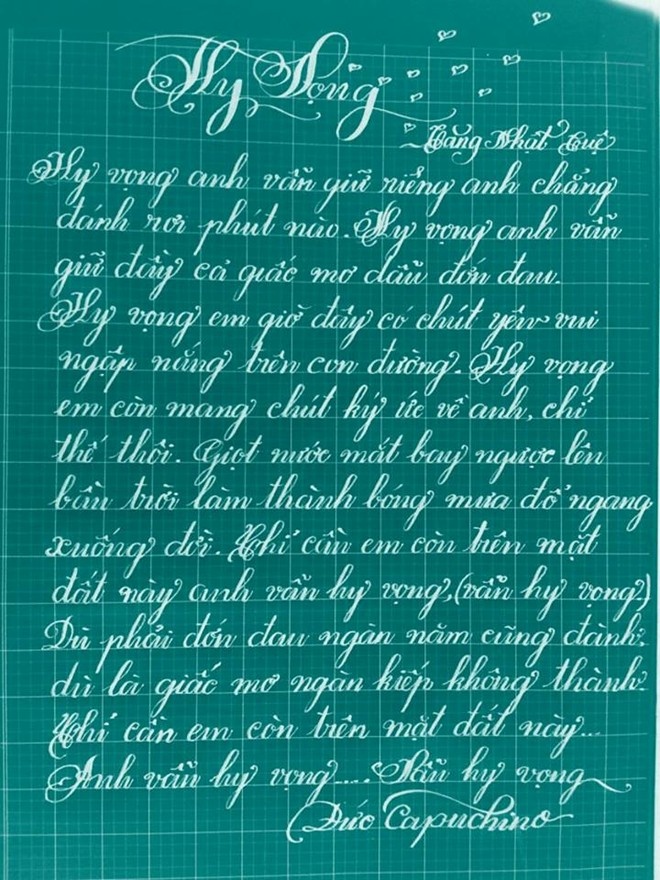 Hy Vọng
~ Tăng Nhật Tuệ
Hy vọng anh vẫn giữ riêng anh chẳng
đánh rơi phút nào. Hy vọng anh vẫn
giữ đầy cả giấc mơ dẫu đớn đau.
Hy vọng em giờ đây có chút yên vui
ngập nắng trên con đường. Hy vọng
em còn mang chút ký ức về anh, chỉ
thế thôi. Giọt nước mắt bay ngược lên
bầu trời làm thành bóng mưa đổ ngang
xuống đời. Chỉ cần em còn trên mặt
đất này anh vẫn hy vọng, (vẫn hy vọng.)
Dù phải đớn đau ngàn năm cũng đành,
dù là giấc mơ ngàn kiếp không thành.
Chỉ cần em còn trên mặt đất này...
Anh vẫn hy vọng.... Vẫn hy vọng
Đức Capuchino